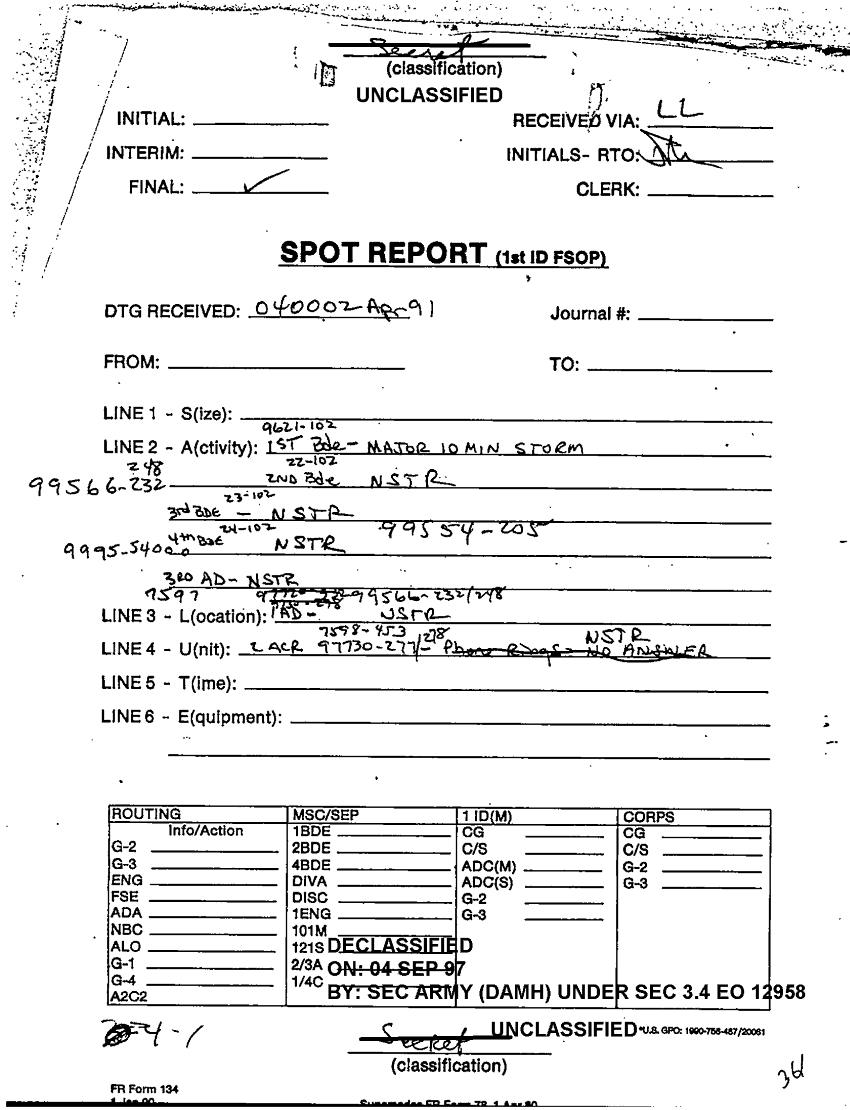 Secret
(classification)
UNCLASSIFIED
INITIAL:
RECEIVED VIA: LL
INTERIM:
INITIALS- RTO:
FINAL: ✓
CLERK:
SPOT REPORT (1st ID FSOP)
DTG RECEIVED: 040002 Apr 91
Journal #:
FROM:
TO:
LINE 1 - S(ize):
9621-102
LINE 2 - A(ctivity): 1ST Bde - MAJOR 10 MIN STORM
248 22-102
99566-232 2ND Bde NSTR
23-102
3rd BDE - NSTR
24-102 99554-205
9995-5400 4th BDE NSTR
3RD AD - NSTR
7597 99566-232/248
LINE 3 - L(ocation): 1AD - NSTR
7598-453 NSTR
LINE 4 - U(nit): 2 ACR 97730-277/278 - Phone Rings - NO ANSWER
LINE 5 - T(ime):
LINE 6 - E(quipment):
ROUTING MSC/SEP 1 ID(M) CORPS
Info/Action 1BDE CG CG
G-2 2BDE C/S C/S
G-3 4BDE ADC(M) G-2
ENG DIVA ADC(S) G-3
FSE DISC G-2
ADA 1ENG G-3
NBC 101M
ALO 121S DECLASSIFIED
G-1 2/3A ON: 04 SEP 97
G-4 1/4C BY: SEC ARMY (DAMH) UNDER SEC 3.4 EO 12958
A2C2
4-1
Secret UNCLASSIFIED *U.S. GPO: 1990-755-487/20061
(classification)
36
FR Form 134
1 Jan 90 Supersedes FR Form 78, 1 Apr 80